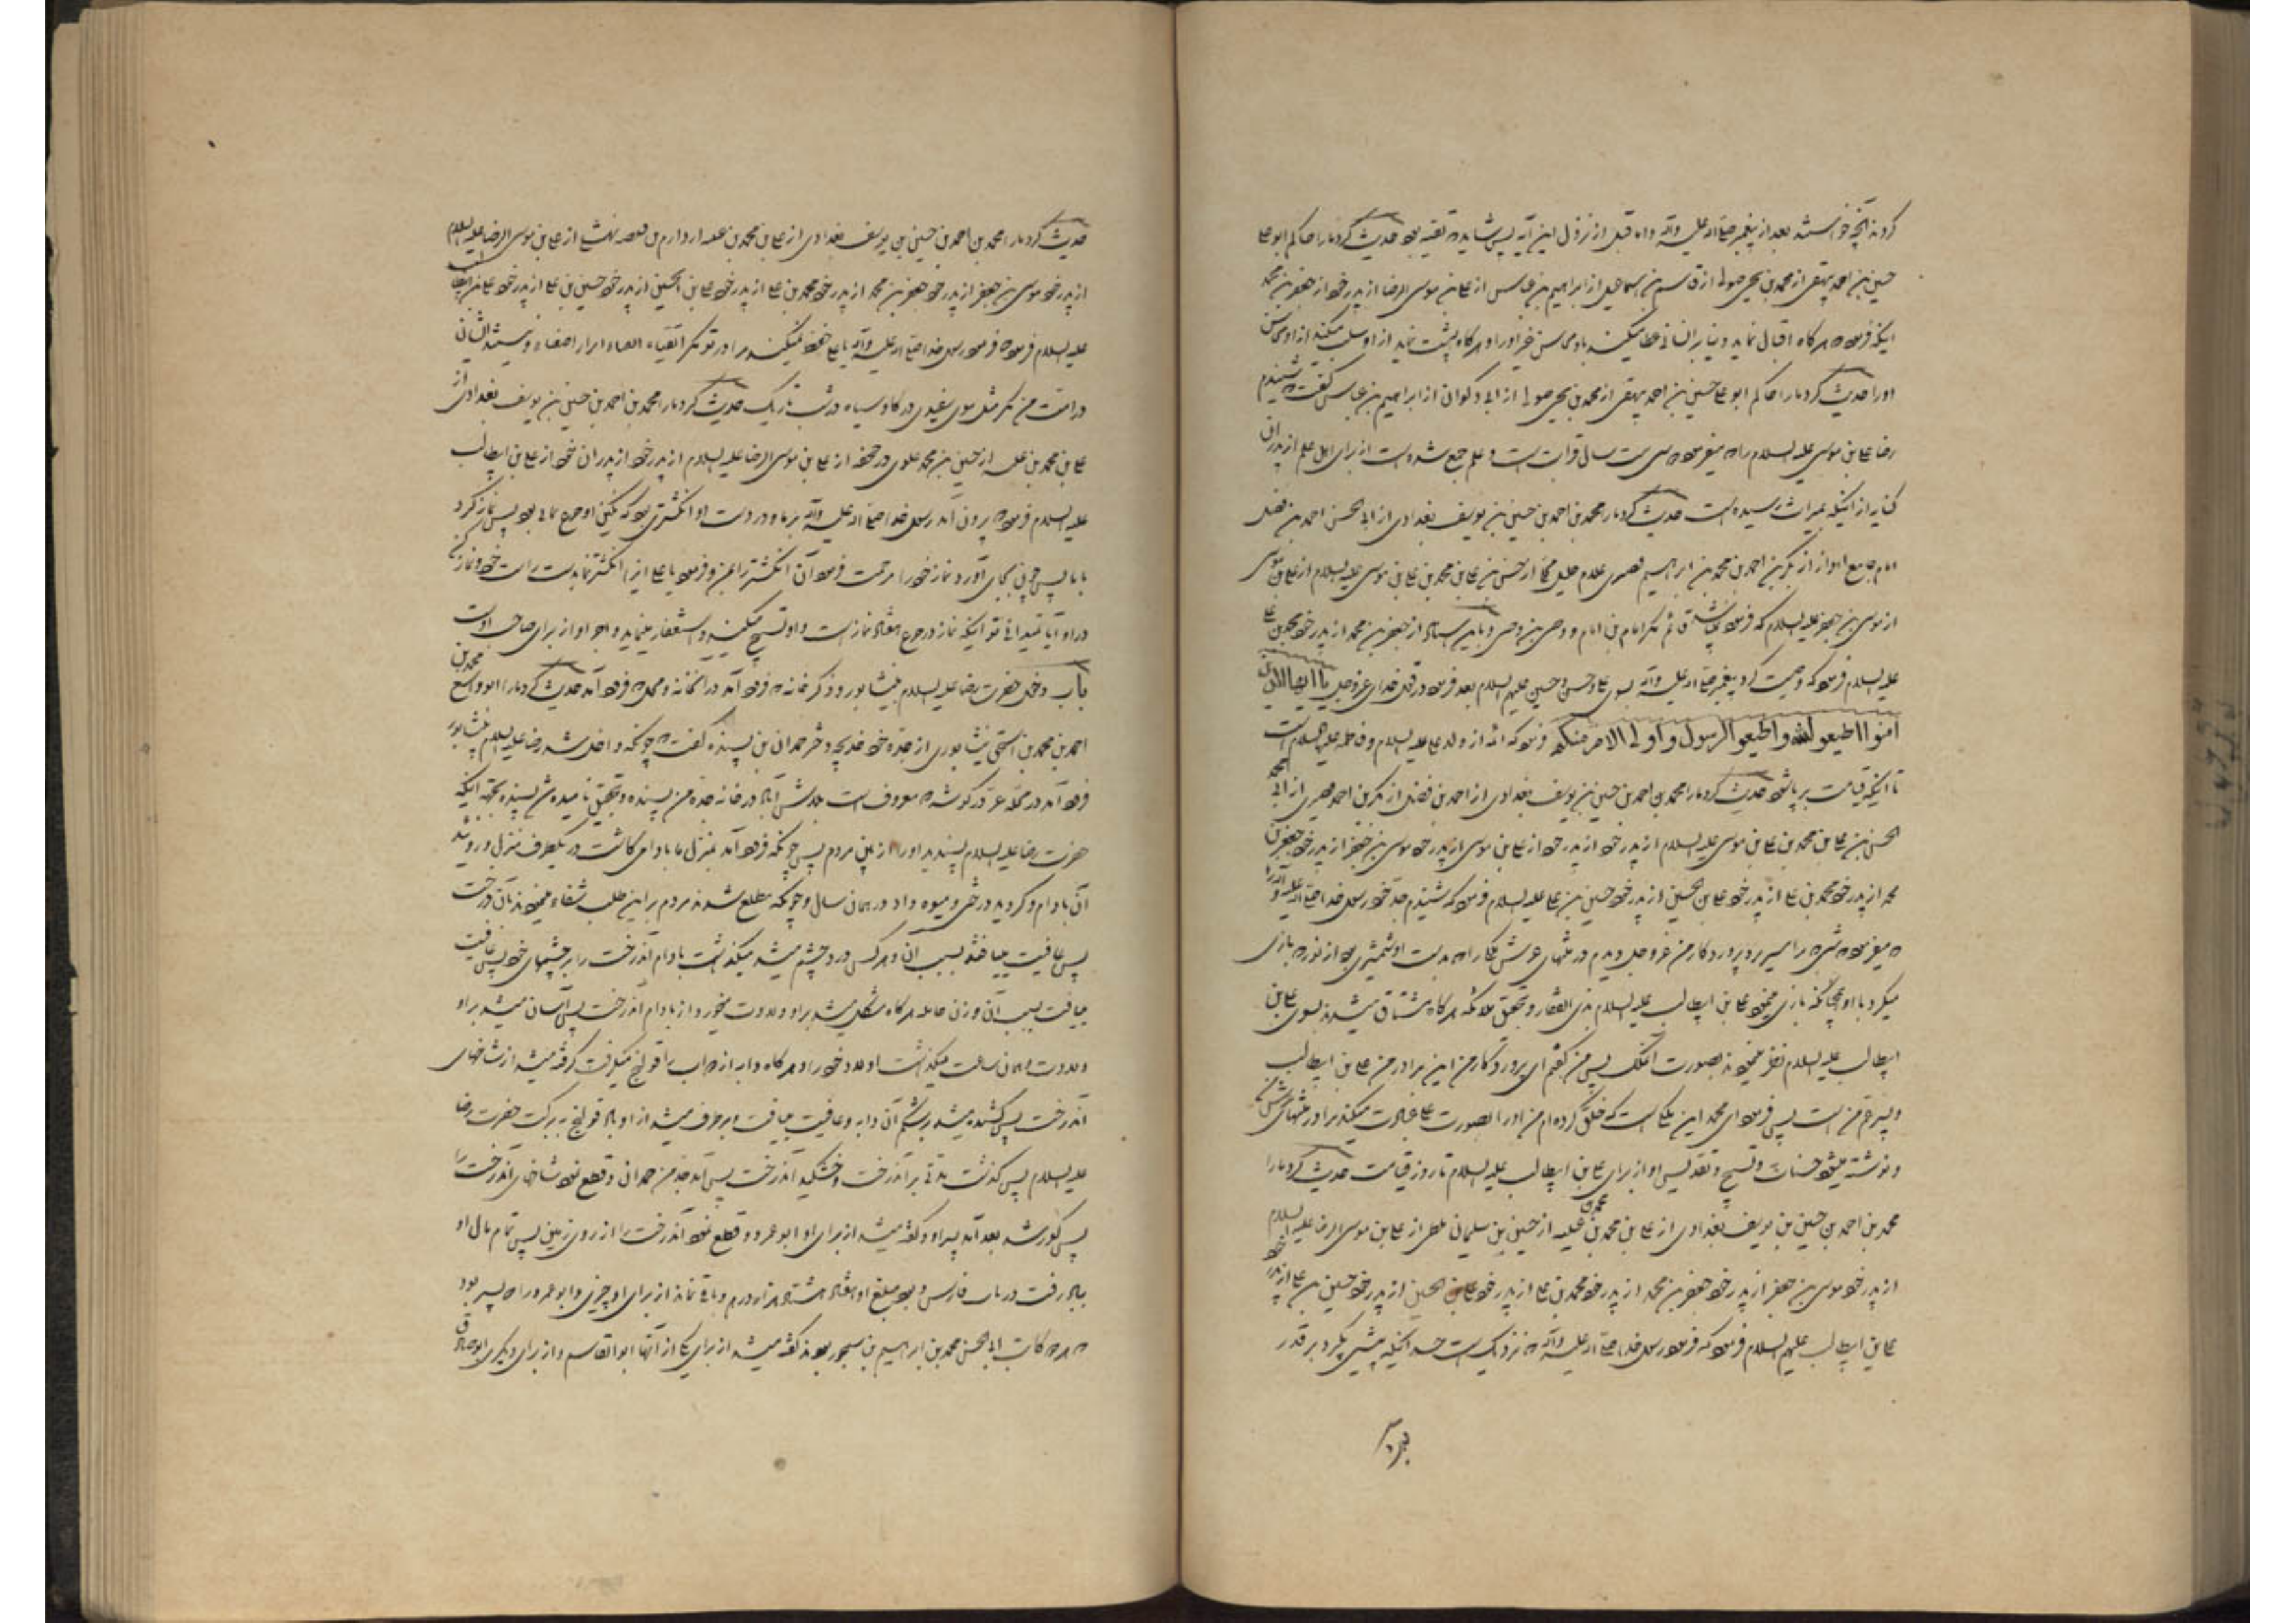 کردند آنچه خواستند بعد از پیغمبر صلی الله علیه وآله و اما قبل از نزول این آیه پس شاید که تقیه بود حدیث کرد ما را حاکم ابو علی
حسین بن احمد بیهقی از محمد بن یحیی صولی از قاسم بن اسماعیل از ابراهیم بن عباس از علی بن موسی الرضا از پدر خود از جعفر بن محمد
اینکه فرمود هرگاه اقبال نماید دنیا بر انسانی عطا میکند باو محاسن غیر او را و هرگاه پشت نماید از او سلب میکند از او محاسن
او را حدیث کرد ما را حاکم ابو علی حسین بن احمد بیهقی از محمد بن یحیی صولی از ابی ذکوان از ابراهیم بن عباس گفت شنیدم
رضا علی بن موسی علیه السلام را که میفرمود علم جمع شده است از برای اهل علم از پدران
کنایه از اینکه بمیراث رسیده است حدیث کرد ما را محمد بن احمد بن حسین بن یوسف بغدادی از ابی الحسن احمد بن فضل
امام جامع اهواز از بکر بن احمد بن محمد بن ابراهیم قصری غلام خلیل از حسن بن علی بن محمد بن علی بن موسی علیه السلام از علی بن موسی
از موسی بن جعفر علیه السلام که فرمود نمیباشد قائم مگر امام بن امام و وصی بن وصی و باین اسناد از جعفر بن محمد از پدر خود محمد بن علی
علیه السلام فرمود که وصیت کرد پیغمبر صلی الله علیه وآله بسوی علی و حسن و حسین علیهم السلام بعد فرمود در قول خدای عز و جل یا ایها الذین
آمنوا اطیعو الله واطیعو الرسول و اولی الامر منکم فرمود که ائمه از ولد علی علیه السلام و فاطمه علیها السلام است
تا اینکه قیامت بر پا شود حدیث کرد ما را محمد بن احمد بن حسین بن یوسف بغدادی از احمد بن فضل از بکر بن احمد قصری از ابی محمد
الحسن بن علی بن محمد بن علی بن موسی علیه السلام از پدر خود از پدر خود از علی بن موسی از پدر خود موسی بن جعفر از پدر خود جعفر بن
محمد از پدر خود محمد بن علی از پدر خود علی بن الحسین از پدر خود حسین بن علی علیه السلام فرمود که شنیدم جد خود رسول خدا صلی الله علیه وآله را
که میفرمود شبی که مرا سیر برد پروردگار من عز و جل دیدم در بطنهای عرش ملکی را که بدست او شمشیری بود از نور که بازی
میکرد با او همچنانکه بازی مینمود علی بن ابیطالب علیه السلام بذی الفقار و بتحقیق ملائکه هرگاه مشتاق میشدند بسوی علی بن
ابیطالب علیه السلام نظر مینمودند بصورت آن ملک پس من گفتم ای پروردگار من این برادر من علی بن ابیطالب
و پسر عم من است پس فرمود ای محمد این ملکی است که خلق کرده ام من او را بصورت علی عبادت میکند مرا در بطنهای عرش من
و نوشته میشود حسنات و تسبیح و تقدیس او از برای علی بن ابیطالب علیه السلام تا روز قیامت حدیث کرد ما را
محمد بن احمد بن حسین بن یوسف بغدادی از علی بن محمد بن عنبسه از حسین بن سلیمان ملطی از علی بن موسی الرضا علیه السلام
از پدر خود موسی بن جعفر از پدر خود جعفر بن محمد از پدر خود محمد بن علی از پدر خود علی بن الحسین از پدر خود حسین بن علی از پدر خود
علی بن ابیطالب علیهم السلام فرمود که فرمود رسول خدا صلی الله علیه وآله که نزدیک است حسد اینکه پیشی گیرد بر قدر
حدیث کرد ما را محمد بن احمد بن حسین بن یوسف بغدادی از علی بن محمد بن عنبسه از دارم بن قبیصه نهشلی از علی بن موسی الرضا علیه السلام
از پدر خود موسی بن جعفر از پدر خود جعفر بن محمد از پدر خود محمد بن علی از پدر خود علی بن الحسین از پدر خود حسین بن علی از پدر خود علی بن ابیطالب
علیه السلام فرمود که فرمود رسول خدا صلی الله علیه وآله یا علی حفظ نمیکنند مرا در تو مگر اتقیاء ابرار اصفیاء و نیستند ایشان
در امت من مگر مثل موی سفیدی در گاو سیاه در شب تاریک حدیث کرد ما را محمد بن احمد بن حسین بن یوسف بغدادی از
علی بن محمد بن عنبسه از حسین بن محمد علوی در جحفه از علی بن موسی الرضا علیه السلام از پدر خود از پدران خود از علی بن ابیطالب
علیه السلام فرمود که بیرون آمد رسول خدا صلی الله علیه وآله بر ما و در دست او انگشتری بود که نگین او جزع یمانی بود پس نماز کرد
با ما پس چون بجای آورد نماز خود را مرحمت فرمود آن انگشتر را بمن و فرمود یا علی این انگشتر نما بدست راست خود و نماز کن
در او آیا نمیدانی تو اینکه نماز در جزع هفتاد نماز است و او تسبیح میکند و استغفار مینماید و اجر او از برای صاحب اوست
باب دخول حضرت رضا علیه السلام بنیشابور و ذکر خانه که فرود آمد در آنخانه و محله که فرود آمد حدیث کرد ما را ابو واسع محمد بن
احمد بن محمد بن اسحق نیشابوری از جده خود خدیجه دختر حمدان بن پسنده گفت که چونکه داخل شد رضا علیه السلام نیشابور
فرود آمد در محله غز در گوشه که معروف است بلاش آباد در خانه جده من پسنده و بتحقیق نامیده شد پسنده بجهة اینکه
حضرت رضا علیه السلام پسندید او را از بین مردم پس چونکه فرود آمد بمنزل ما بادامی کاشت در یکطرف منزل و رویید
آن بادام و گردید درختی و میوه داد در همان سال و چونکه مطلع شدند مردم بر این طلب شفاء مینمودند بآن درخت
پس عافیت مییافتند بسبب آن و هر کس درد چشم میشد میگذاشت بادام آندرخت را بر چشمهای خود پس عافیت
مییافت بسبب آن و زن حامله هرگاه مشکل میشد بر او ولادت میخورد از بادام آندرخت پس آسان میشد بر او
ولادت و همان ساعت میگذاشت اولاد خود را و هرگاه دابه از دواب را قولنج میگرفت گرفته میشد از شاخهای
آندرخت پس کشیده میشد بر شکم آن دابه و عافیت مییافت و برطرف میشد از او باد قولنج به برکت حضرت رضا
علیه السلام پس گذشت مدتی بر آندرخت و خشکید آندرخت پس آمد جد من حمدان و قطع نمود شاخهای آندرخت را
پس کور شد بعد آمد پسر او و گفته میشد از برای او ابو عمرو و قطع نمود آندرخت را از روی زمین پس تمام مال او
بباد رفت در باب فارس و بود مبلغ او هفتاد هشتاد هزار درهم و باقی نماند از برای او چیزی و ابو عمرو را دو پسر بود
که هر دو کاتب ابی الحسن محمد بن ابراهیم بن سمجور بودند گفته میشد از برای یکی از آنها ابو القاسم و از برای دیگری ابو صادق